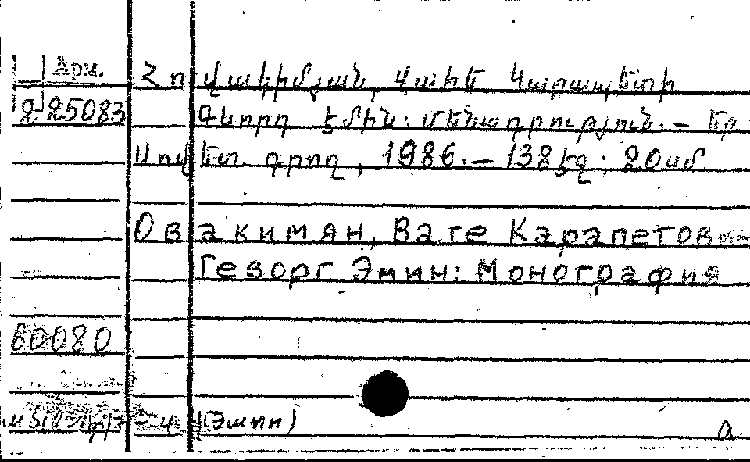 Арм.
Հովակիմյան, Վահե Կարապետի
225083
Գևորգ Էմին: Մենագրություն. – Եր
Սովետ. գրող, 1986. – 138 էջ; 20 սմ
Овакимян, Ваге Карапетов
Геворг Эмин: Монография
60080
(Էմին)
а